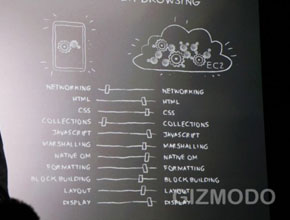 BROWSING
EC2
NETWORKING NETWORKING
HTML HTML
CSS CSS
COLLECTIONS COLLECTIONS
JAVASCRIPT JAVASCRIPT
MARSHALLING MARSHALLING
NATIVE OM NATIVE OM
FORMATTING FORMATTING
BLOCK BUILDING BLOCK BUILDING
LAYOUT LAYOUT
DISPLAY DISPLAY
GIZMODO